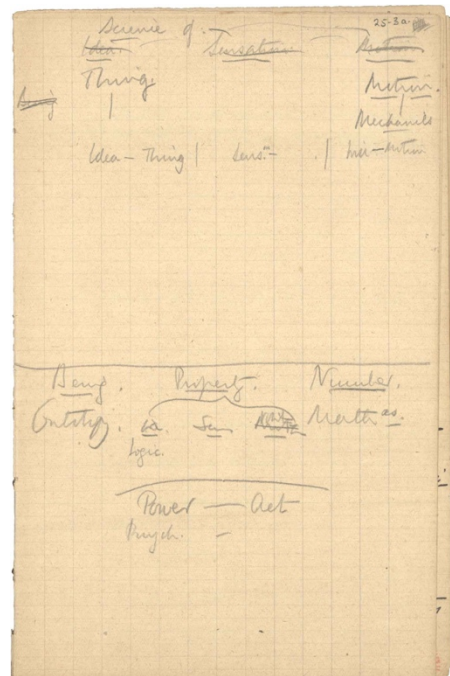 25-3a
Science of
Idea. Sensation Motion
Thing. Motion.
Being
Mechanics
Idea - Thing | Sens.n - |
Being. Property. Number.
Ontology. Id. Sen. Math.cs.
Logic.
Power — Act
Psych. —